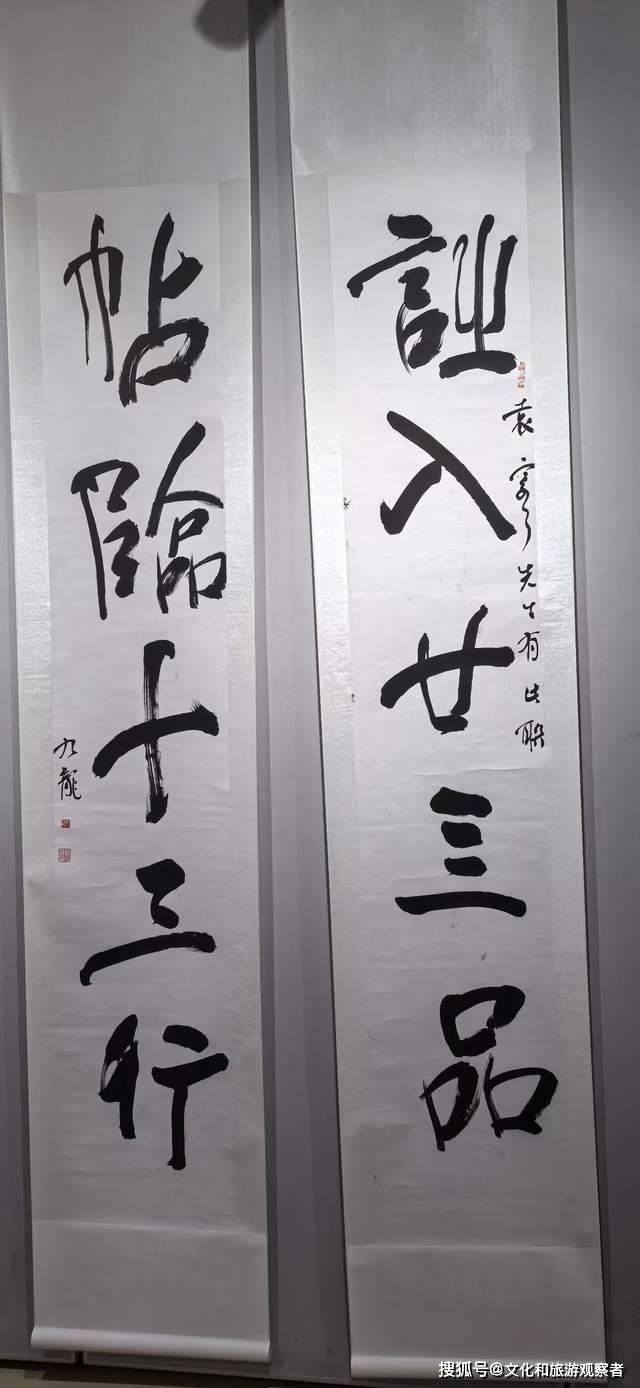 詩入廿三品
袁寒云先生有此聯
帖臨十三行
九龍
搜狐号@文化和旅游观察者